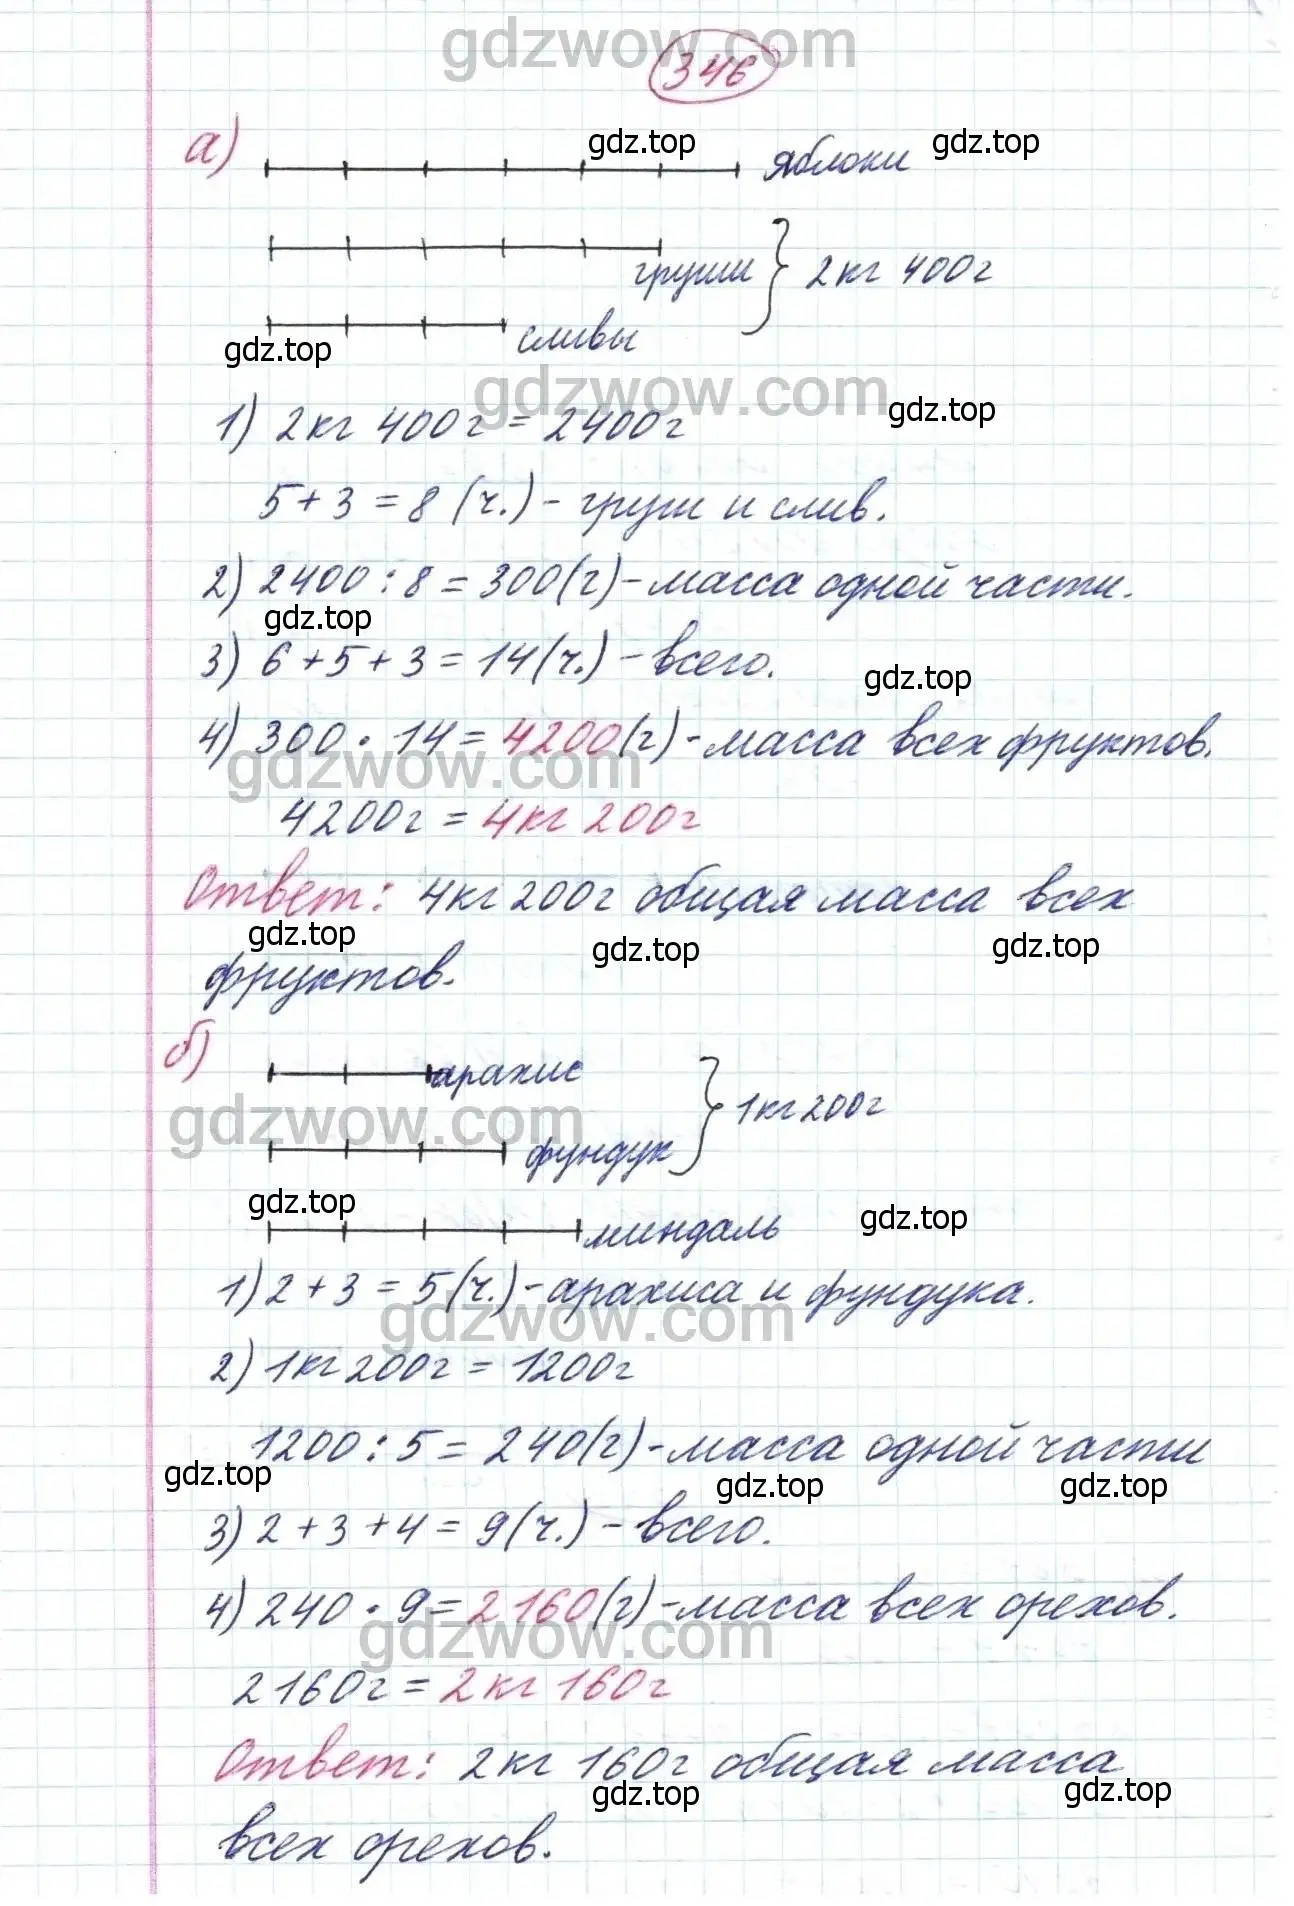 gdzwow.com
346
а)
gdz.top
gdz.top
яблоки
груши
2кг 400г
сливы
gdz.top
gdzwow.com
gdz.top
1) 2кг 400г = 2400г
5 + 3 = 8 (ч.) - груш и слив.
2) 2400 : 8 = 300(г) - масса одной части.
gdz.top
3) 6 + 5 + 3 = 14(ч.) - всего.
gdz.top
4) 300 · 14 = 4200(г) - масса всех фруктов.
gdzwow.com
4200г = 4кг 200г
Ответ: 4кг 200г общая масса всех
gdz.top
gdz.top
gdz.top
фруктов.
б)
арахис
1кг 200г
gdzwow.com
фундук
gdz.top
gdz.top
миндаль
1) 2 + 3 = 5(ч.) - арахиса и фундука.
gdzwow.com
2) 1кг 200г = 1200г
1200 : 5 = 240(г) - масса одной части
gdz.top
gdz.top
gdz.top
3) 2 + 3 + 4 = 9(ч.) - всего.
4) 240 · 9 = 2160(г) - масса всех орехов.
gdzwow.com
2160г = 2кг 160г
Ответ: 2кг 160г общая масса
gdz.top
gdz.top
всех орехов.